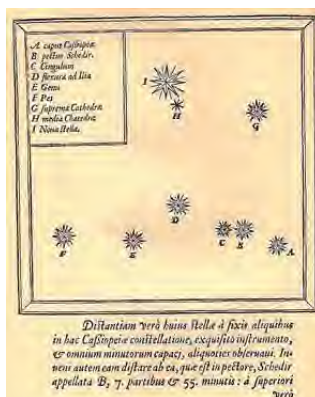 A caput Cassiopeæ
B pectus Schedir.
C Cingulum
D flexura ad Ilia
E Genu
F Pes
G suprema Cathedræ
H media Chatedræ
I Noua stella.
I
H
G
D
F
E
C
B
A
Distantiam verò huius stellæ à fixis aliquibus
in hac Cassiopeiæ constellatione, exquisito instrumento,
& omnium minutorum capaci, aliquoties obseruaui. In-
ueni autem eam distare ab ea, quæ est in pectore, Schedir
appellata B, 7. partibus & 55. minutis : à superiori
verò